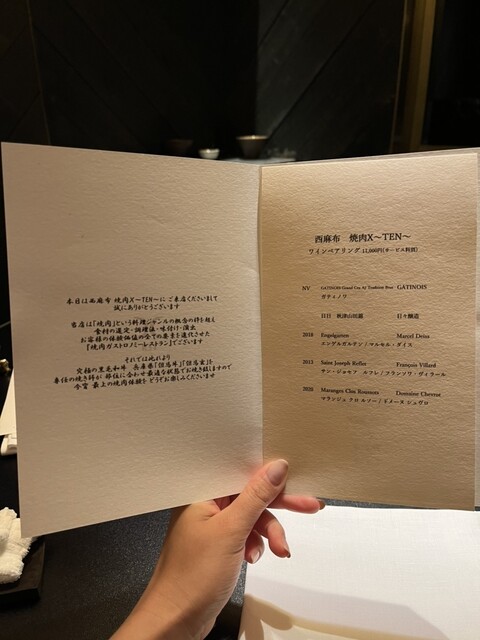 本日は西麻布 焼肉X〜TEN〜に ご来店くださいまして
誠にありがとうございます
当店は「焼肉」という料理ジャンルの概念の枠を超え
食材の選定・調理法・味付け・演出
お客様の体験価値の全ての要素を進化させた
「焼肉ガストロノミーレストラン」でございます
それでは此れより
究極の黒毛和牛 兵庫県「但馬牛」「但馬玄」を
専任の焼き師が 部位に合わせ最適な状態でお焼き致しますので
今宵 最上の焼肉体験を どうぞお楽しみくださいませ
西麻布 焼肉X〜TEN〜
ワインペアリング 11,000円(サービス料別)
NV GATINOIS Grand Cru AŸ Tradition Brut GATINOIS
ガティノワ
日日 秋津山田錦 日々醸造
2018 Engelgarten Marcel Deiss
エンゲルガルテン / マルセル・ダイス
2013 Saint Joseph Reflet François Villard
サン・ジョセフ ルフレ / フランソワ・ヴィラール
2020 Maranges Clos Roussots Domaine Chevrot
マランジュ クロ ルソー / ドメーヌ シュヴロ